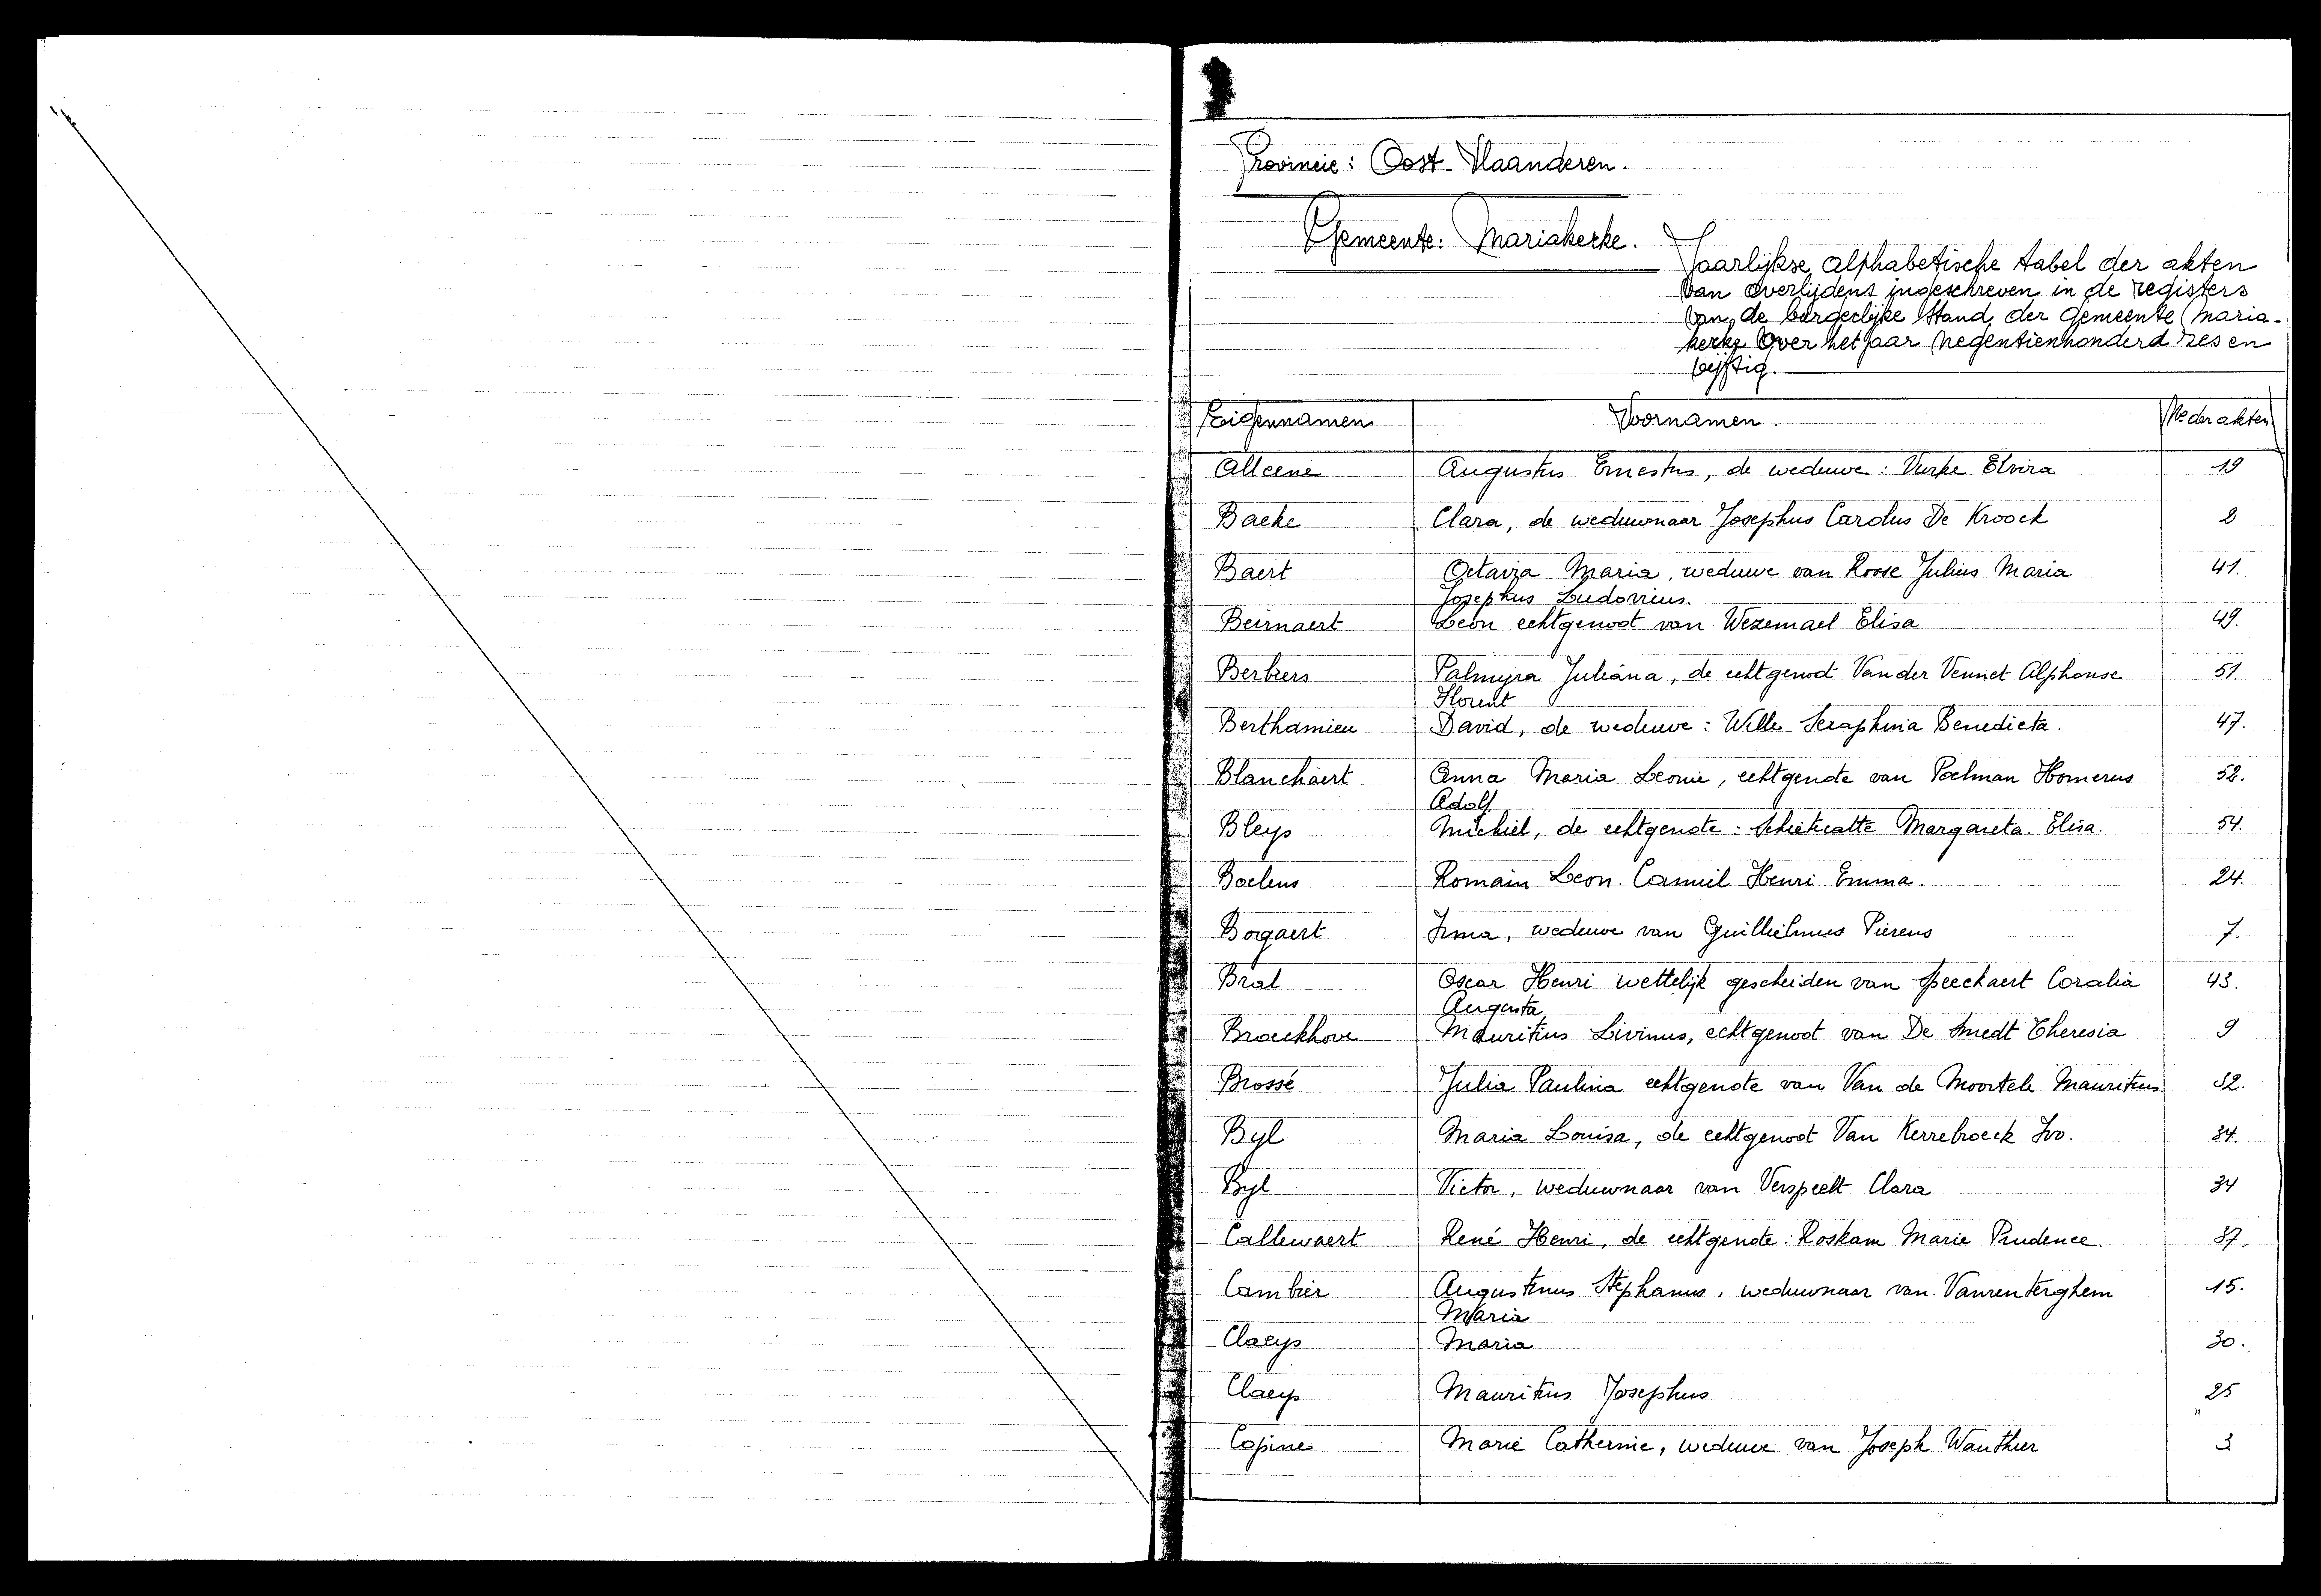 Provincie: Oost-Vlaanderen.
Gemeente: Mariakerke.
Jaarlijkse alphabetische tabel der akten
van overlijdens ingeschreven in de registers
van de burgerlijke Stand der Gemeente Maria-
kerke over het jaar negentienhonderd zes en
vijftig.
Eigennamen Voornamen. Nr der akten
Alleene Augustus Ernestus, de weduwe: Elvira 19
Baeke Clara, de weduwnaar Josephus Carolus De Kroock 8
Baert Octavia Maria, weduwe van Roose Julius Maria 41.
Josephus Ludovicus.
Beirnaert Leon echtgenoot van Wezemael Elisa 49.
Berbiers Palmyra Juliana, de echtgenoot Van der Vennet Alphonse 51.
Florent
Berthamieu David, de weduwe: Wille Seraphina Benedicta. 47.
Blanchaert Anna Maria Leonie, echtgenote van Poelman Homerus 52.
Adolf
Bleys Michiel, de echtgenote: Schietecatte Margareta. Elisa. 54.
Boelens Romain Leon. Camiel Henri Emma. 24.
Bogaert Irma, weduwe van Guillielmus Pierens 7.
Bral Oscar Henri wettelijk gescheiden van Speeckaert Coralia 43.
Augusta
Broeckhove Mauritius Livinus, echtgenoot van De Smedt Theresia 9
Brossé Julia Paulina echtgenote van Van de Moortele Mauritius 32.
Byl Maria Louisa, de echtgenoot Van Kerrebroeck Ivo. 34.
Byl Victor, weduwnaar van Verspeelt Clara
Callewaert René Henri, de echtgenote: Roskam Marie Prudence. 37.
Cambier Augustinus Stephanus, weduwnaar van. Vanrenterghem 15.
Maria
Claeys Maria 30.
Claeys Mauritius Josephus 25
Copine Marie Catherine, weduwe van Joseph Wauthier 3